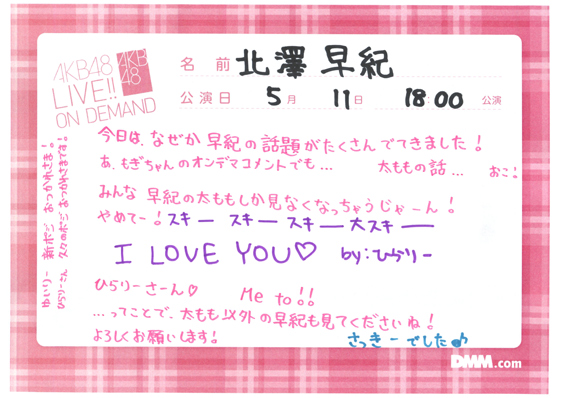 AKB48
LIVE!!
ON DEMAND
AKB
48
名 前 北澤 早紀
公演日 5月 11日 18:00 公演
今日は、なぜか 早紀の話題がたくさんでてきました!
あ、もぎちゃんのオンデマコメントでも… 太ももの話… おこ!
みんな 早紀の太ももしか見なくなっちゃうじゃーん!
やめてー! スキー スキー スキー 大スキー
I LOVE YOU♡ by:ひらりー
ひらりーさーん♡ Me to!!
…ってことで、太もも以外の早紀も見てくださいね!
よろしくお願いします! さっきーでした♪
ゆいりー 新ポジ おつかれさま!
ひらりーさん 久々のポジ おつかれさまです!
DMM.com